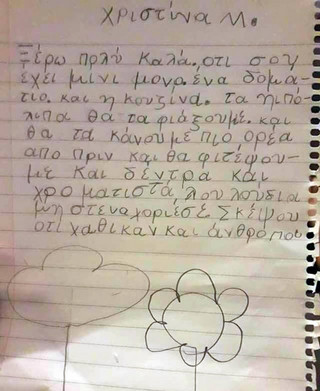 χριστίνα Μ.
Ξέρω πολύ καλά. οτι σου
έχει μίνι μονο. ένα δομά-
τιο. και η κουζίνα. τα ηπό-
λιπα θα τα φιάξουμε. και
θα τα κάνουμε πιο ορέα
απο πριν και θα φιτέψου-
με και δέντρα και
χροματιστά λουλούδια
μη στεναχοριέσε. Σκέψου
οτι χαθικαν και άνθρόποι